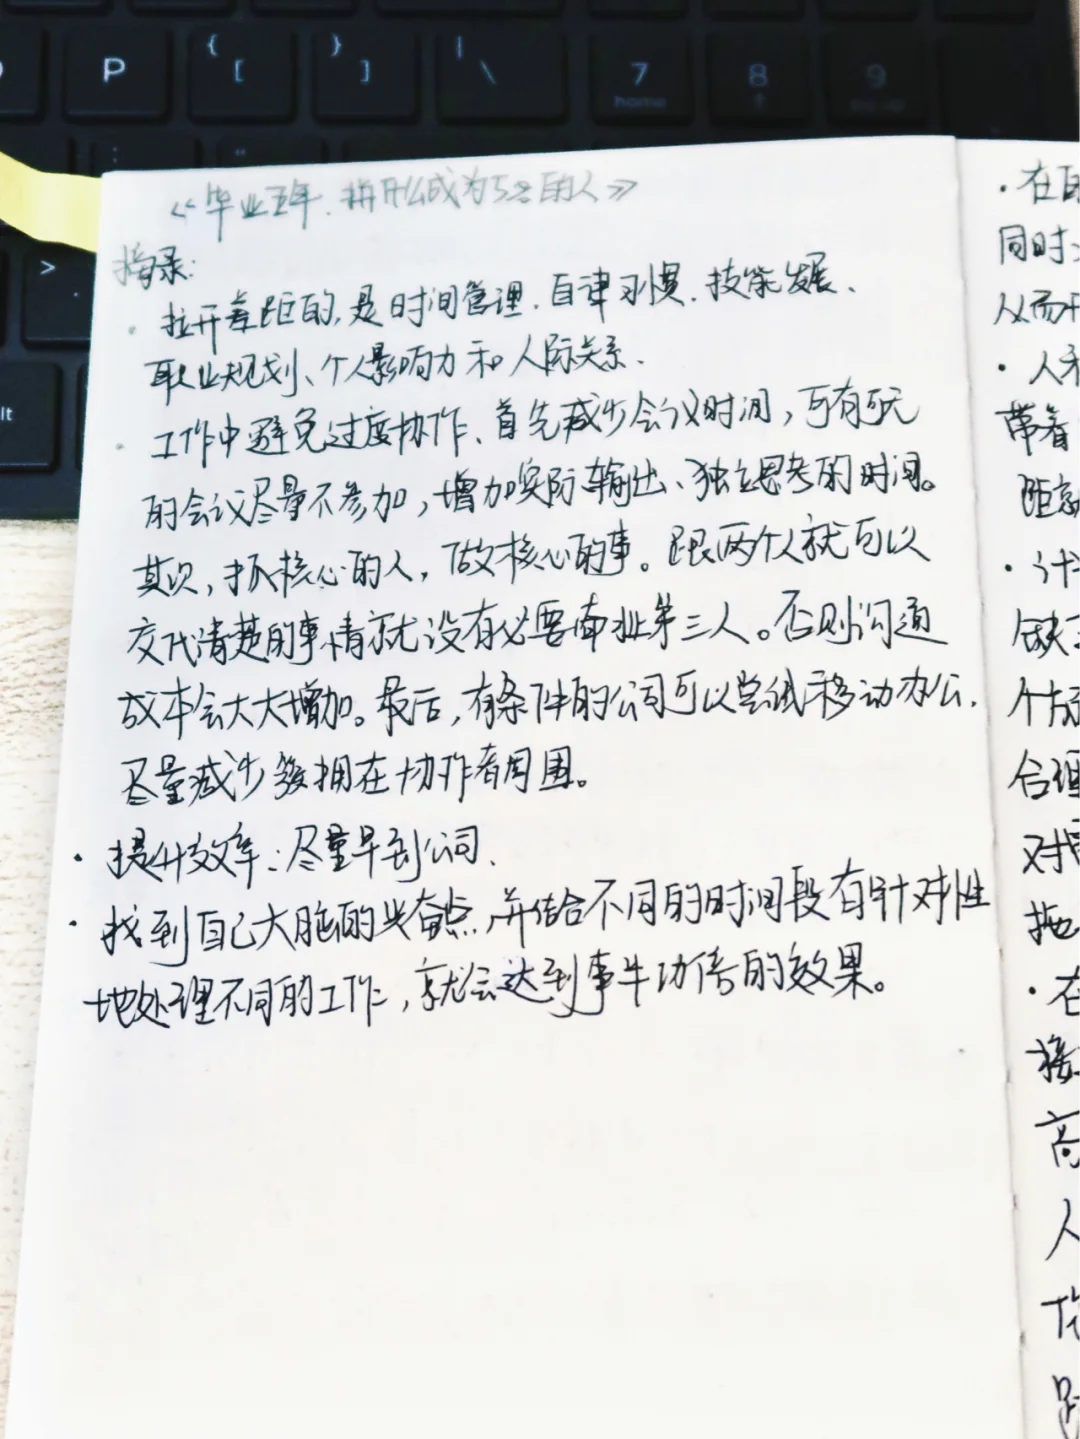 P
{
[
}
]
|
\
7
home
8
9
>
.
lt
《毕业五年,拼什么成为5%的人》
摘录:
· 拉开差距的,是时间管理、自律习惯、技能发展、
职业规划、个人影响力和人际关系、
· 工作中避免过度协作、首先减少会议时间,可有可无
的会议尽量不参加,增加实际输出、独立思考的时间。
其次,抓核心的人,做核心的事。跟两个人就可以
交代清楚的事情就没有必要牵扯第三人。否则沟通
成本会大大增加。最后,有条件的公司可以尝试移动办公,
尽量减少簇拥在协作者周围。
· 提升效率:尽量早到公司、
· 找到自己大脑的兴奋点,并结合不同的时间段有针对性
地处理不同的工作,就会达到事半功倍的效果。
· 在
同时
从而
· 人
带着
距
· 计
缺
个
合理
对
拖
· 在
接
高
人